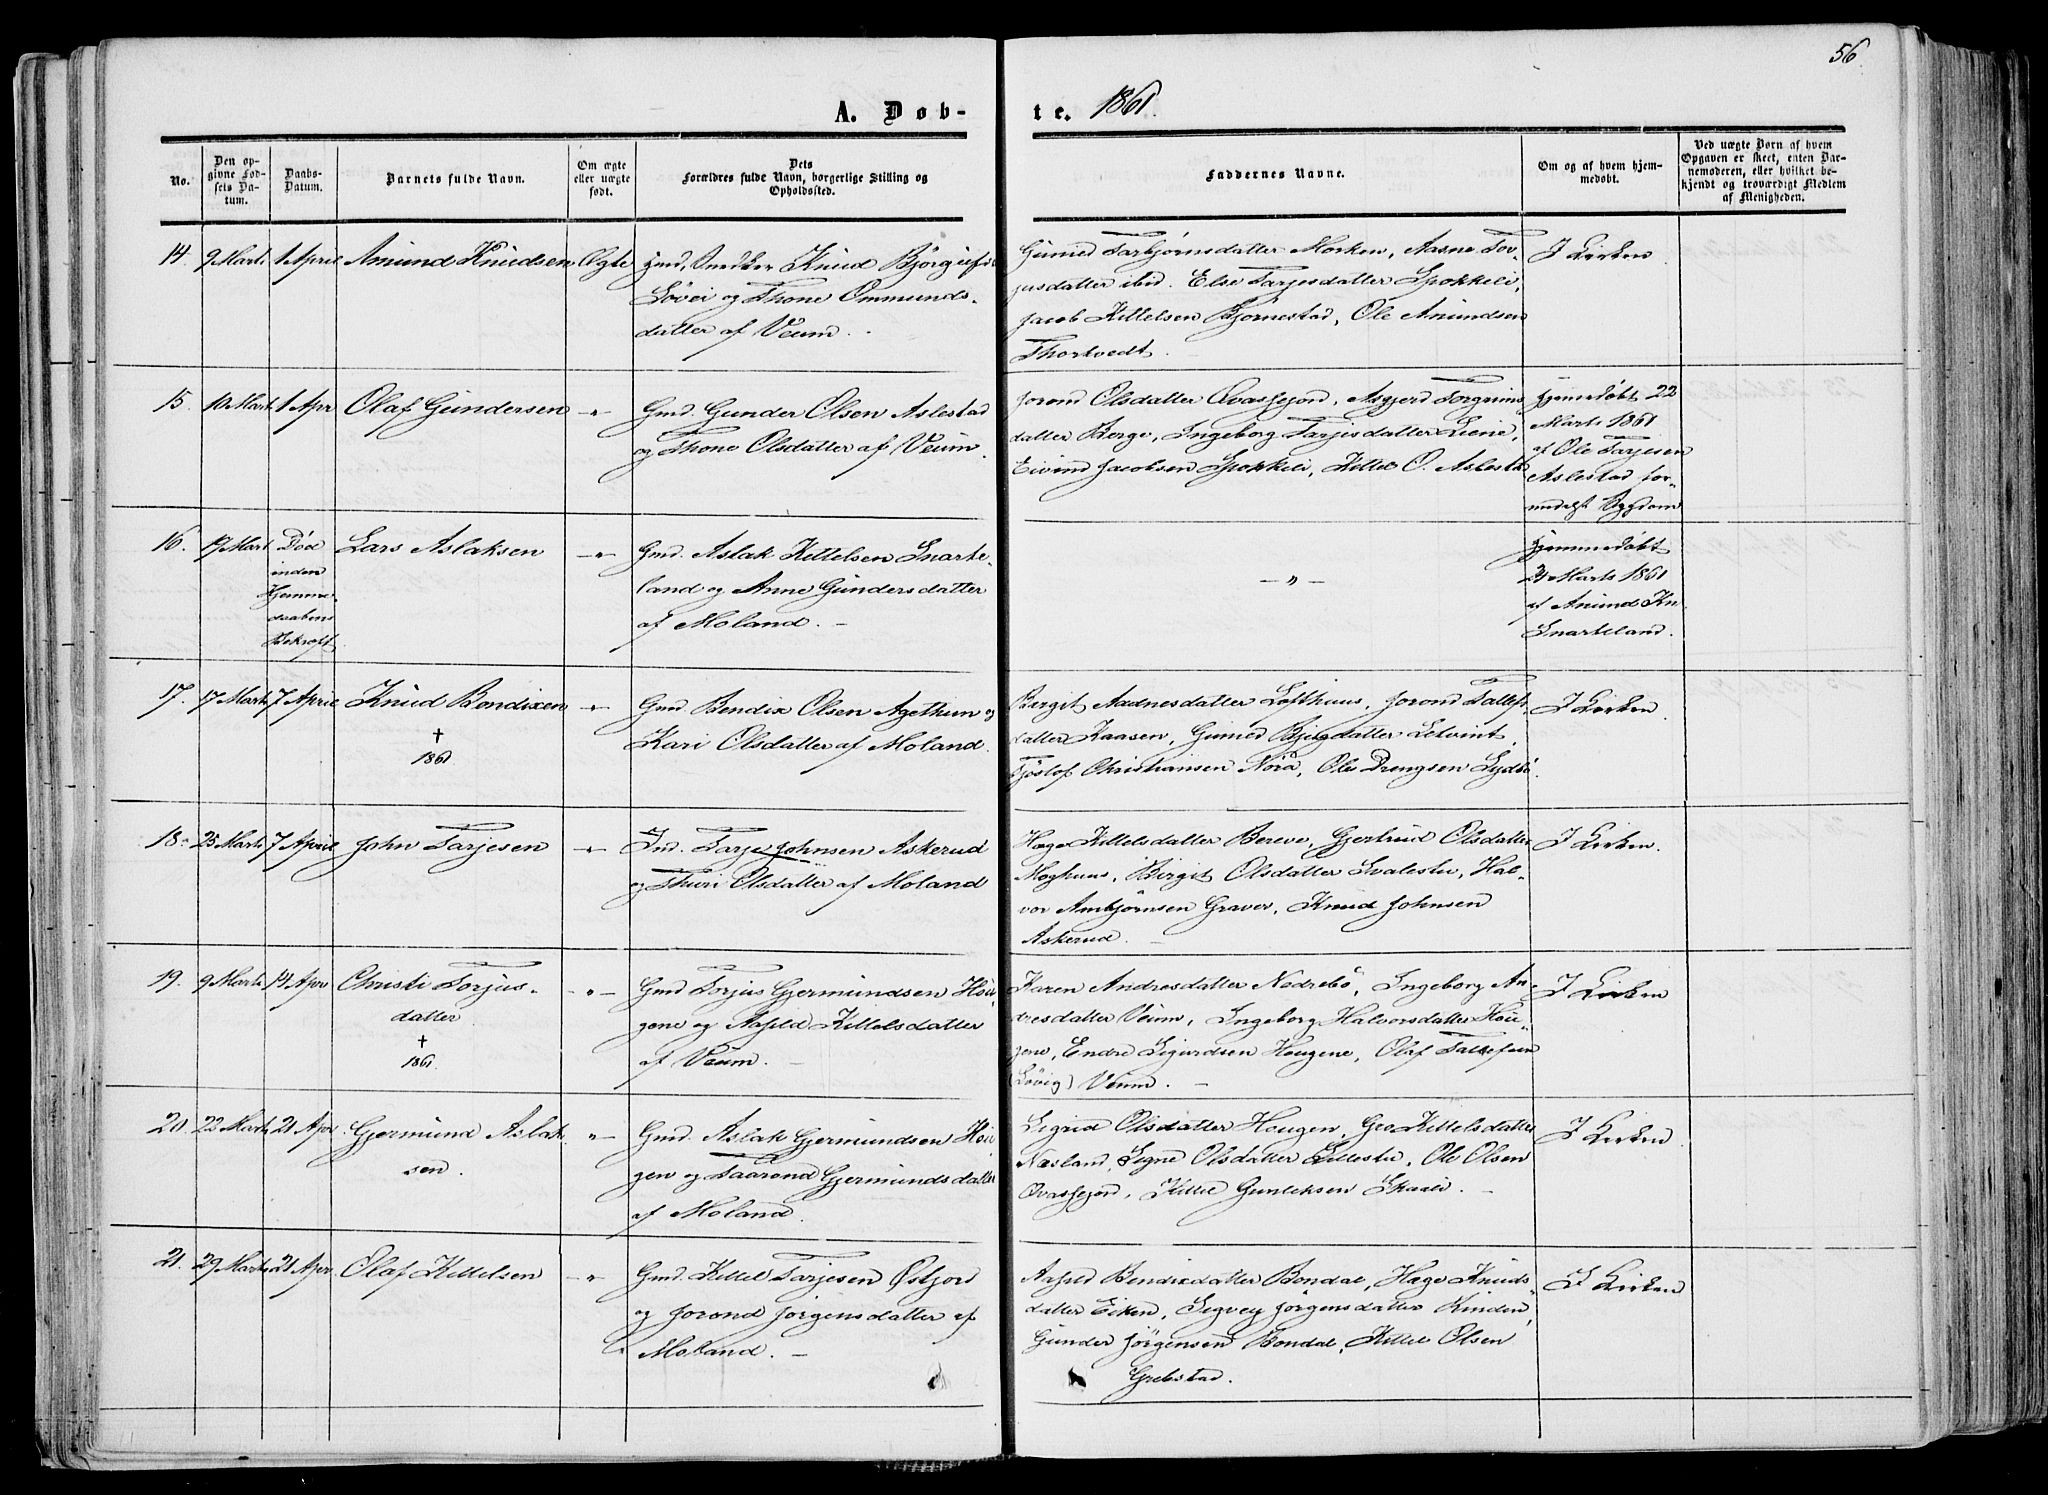 56
A. Døb-
te. 1861.
No.
Den op-
givne Fød-
sels Da-
tum.
Daabs-
Datum.
Barnets fulde Navn.
Om ægte
eller uægte
født.
Dets
Forældres fulde Navn, borgerlige Stilling og
Opholdssted.
Faddernes Navne.
Om og af hvem hjem-
medøbt.
Ved uægte Børn af hvem
Opgaven er skeet, enten Bar-
nemoderen, eller hvilket be-
kjendt og troværdigt Medlem
af Menigheden.
14. 9 Marts 1 April Amund Knudsen Ægte
Gmd, Snedker Knud Björgufs.
Lövei og Thone Ommunds-
datter af Veum.
Gunned Torbjörnsdatter Morken, Aasne Tor-
jusdatter ibid. Else Tarjesdatter Spokkeli,
Jacob Kittelsen Bjornestad, Ole Anundsen
Thortvedt.
I Kirken.
15. 10 Marts 1 Apr Olaf Gundersen -"-
Gmd. Gunder Olsen Aslestad
og Thone Olsdatter af Veum.
Jorond Olsdatter Qvasfejord, Asgjerd Torgrims
datter Berge, Ingeborg Tarjisdatter Liene,
Eivind Jacobsen Spokkeli, Kittel O. Aslesta
Hjemmedøbt 22
Marts 1861
af Ole Tarjesen
Aslestad for-
medelst Sygdom
16. 17 Mart Død
inden
Hjemme-
daabens
Bekræft.
Lars Aslaksen -"-
Gmd. Aslak Kittelsen Snarte-
land og Anne Gundersdatter
af Moland. -
-"-
Hjemmedøbt
21 Marts 1861
af Anund Kn.
Snarteland.
17. 17 Marts 7 April Knud Bendixen -"-
†
1861
Gmd Bendix Olsen Agethun og
Kari Olsdatter af Moland.
Birgit Aadnesdatter Lofthuus, Jorond Tallefs
datter Kaasen, Gunned Bjugdatter Letvint,
Tjöstof Christiansen Nora, Ole Drengsen
I Kirken.
18. 25 Marts 7 April John Tarjesen -"-
Ind. Tarje Johnsen Askerud
og Thuri Olsdatter af Moland
Hæge Kittelsdatter Bereve, Gjertrud Olsdatter
Moghuus, Birgit Olsdatter Svalestu, Hal-
vor Ambjörnsen Graver, Knud Johnsen
Askerud. -
I Kirken.
19. 9 Marts 14 Apr Christi Torjus-
datter.
†
1861.
-"-
Gmd Torjus Gjermundsen Hou-
gene og Aasild Kittelsdatter
af Veum. -
Karen Andresdatter Nedrebö, Ingeborg An-
dresdatter Veum, Ingeborg Halvorsdatter Hou-
gene, Endre Sigurdsen Hougene, Olaf Tallefsen
(Lövig) Veum. -
I Kirken
20. 22 Marts 21 Apr. Gjermund Aslak
sen.
-"-
Gmd. Aslak Gjermundsen Hou
gen og Taarond Gjermundsdatter
af Moland.
Sigrid Olsdatter Hougen, Gro Kittelsdatter
Næsland, Signe Olsdatter Lillestu, Ole Olsen
Qvasfejord, Kittil Gunleksen Skaali. -
I Kirken.
21. 29 Marts 21 Apr. Olaf Kittelsen -"-
Gmd. Kittel Tarjesen Øifjord
og Jorond Jörgensdatter af
Moland. -
Aasild Bendixdatter Bondal, Hæge Knuds-
datter Eiken, Sigvey Jörgensdatter Kinden,
Gunder Jörgensen Bondal, Kittel Olsen
Grebstad.
I Kirken